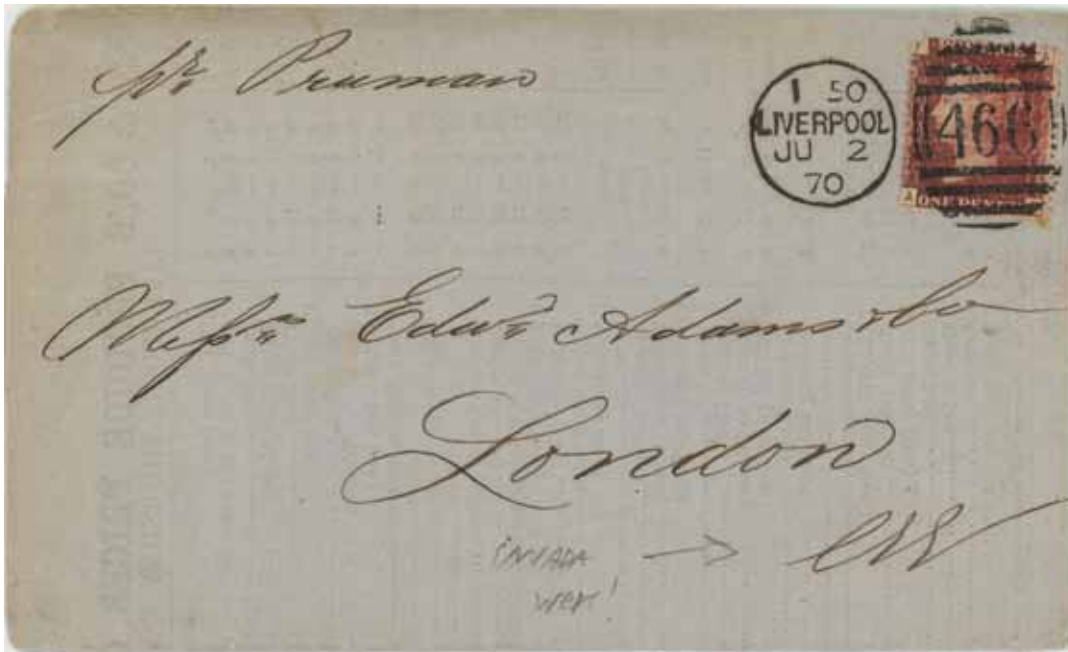 pr Prussian
1 50
LIVERPOOL
JU 2
70
466
A ONE PENNY
Messrs Edwd Adams & Co
London
CW
CANADA
West!